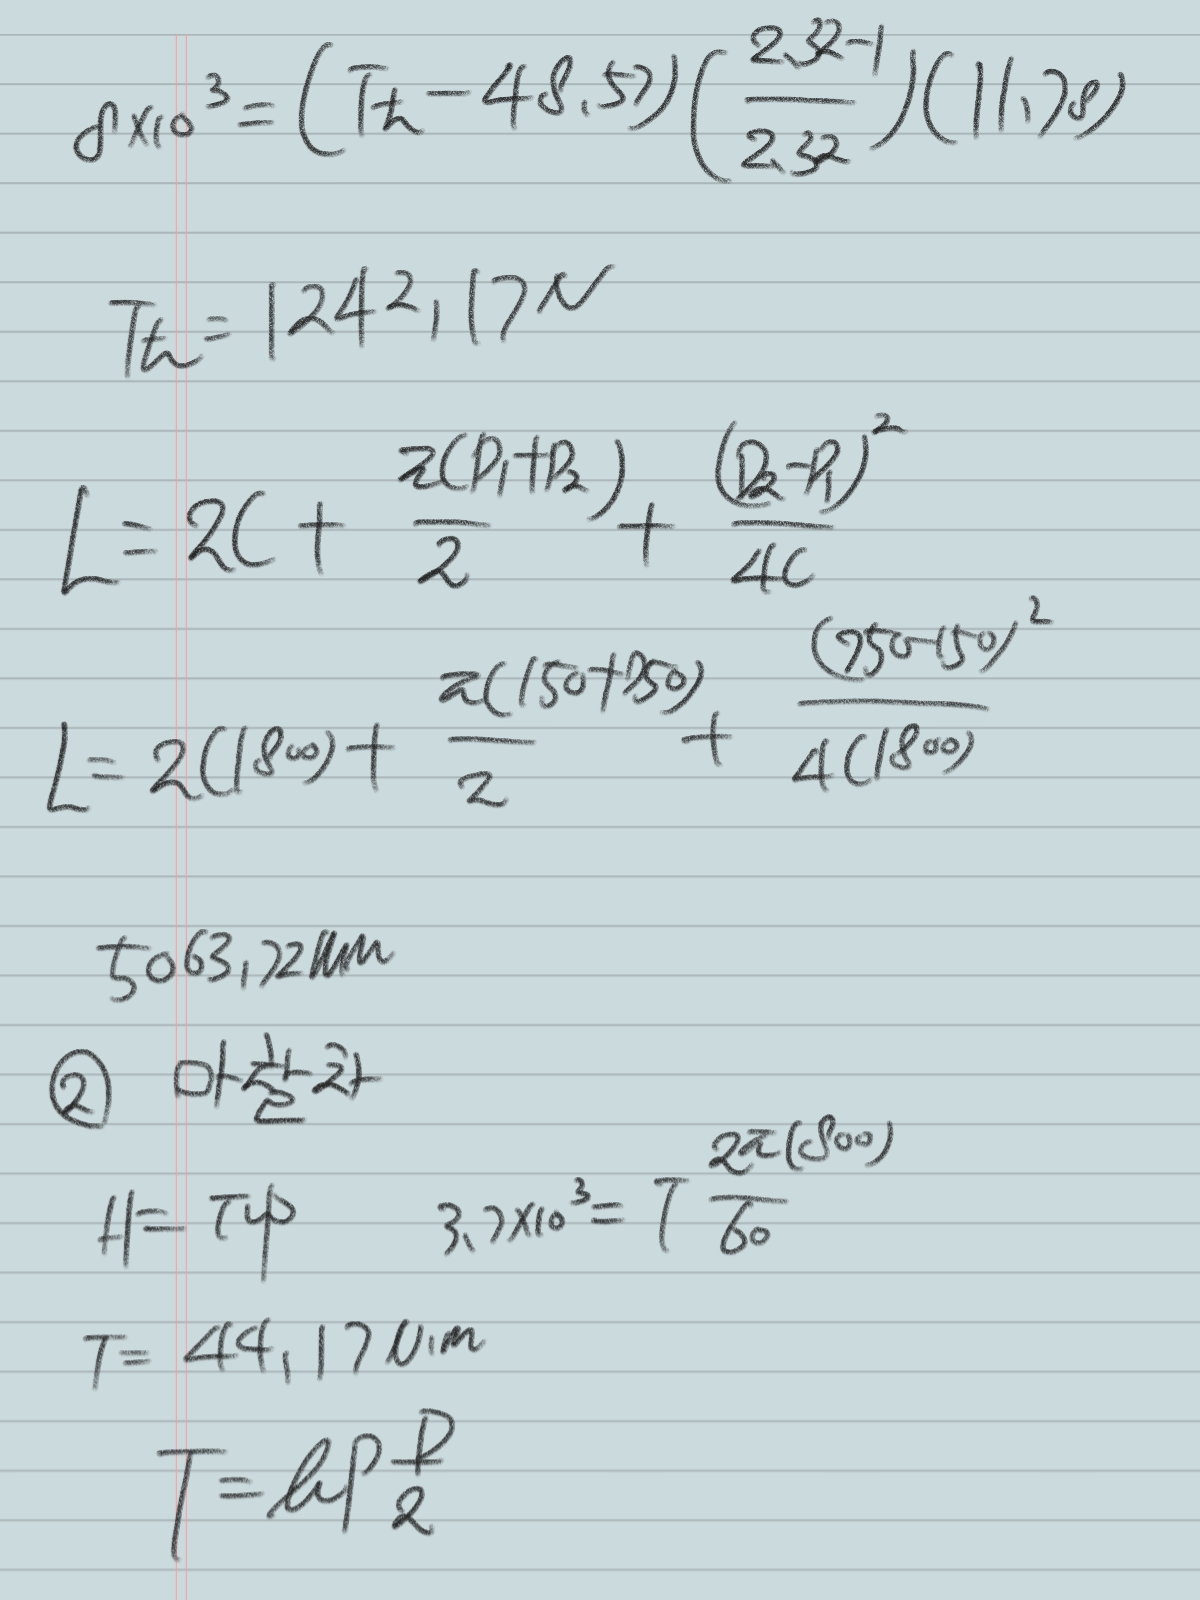 8×10³ = (Tt - 48.57) (2.32-1 / 2.32) (11.78)
Tt = 1242.17N
L = 2C + π(D₁+D₂)/2 + (D₂-D₁)²/4C
L = 2(1800) + π(150+750)/2 + (750-150)²/4(1800)
5063.72mm
② 마찰차
H = Tω 3.7×10³ = T 2π(800)/60
T = 44.17N·m
T = μP D/2